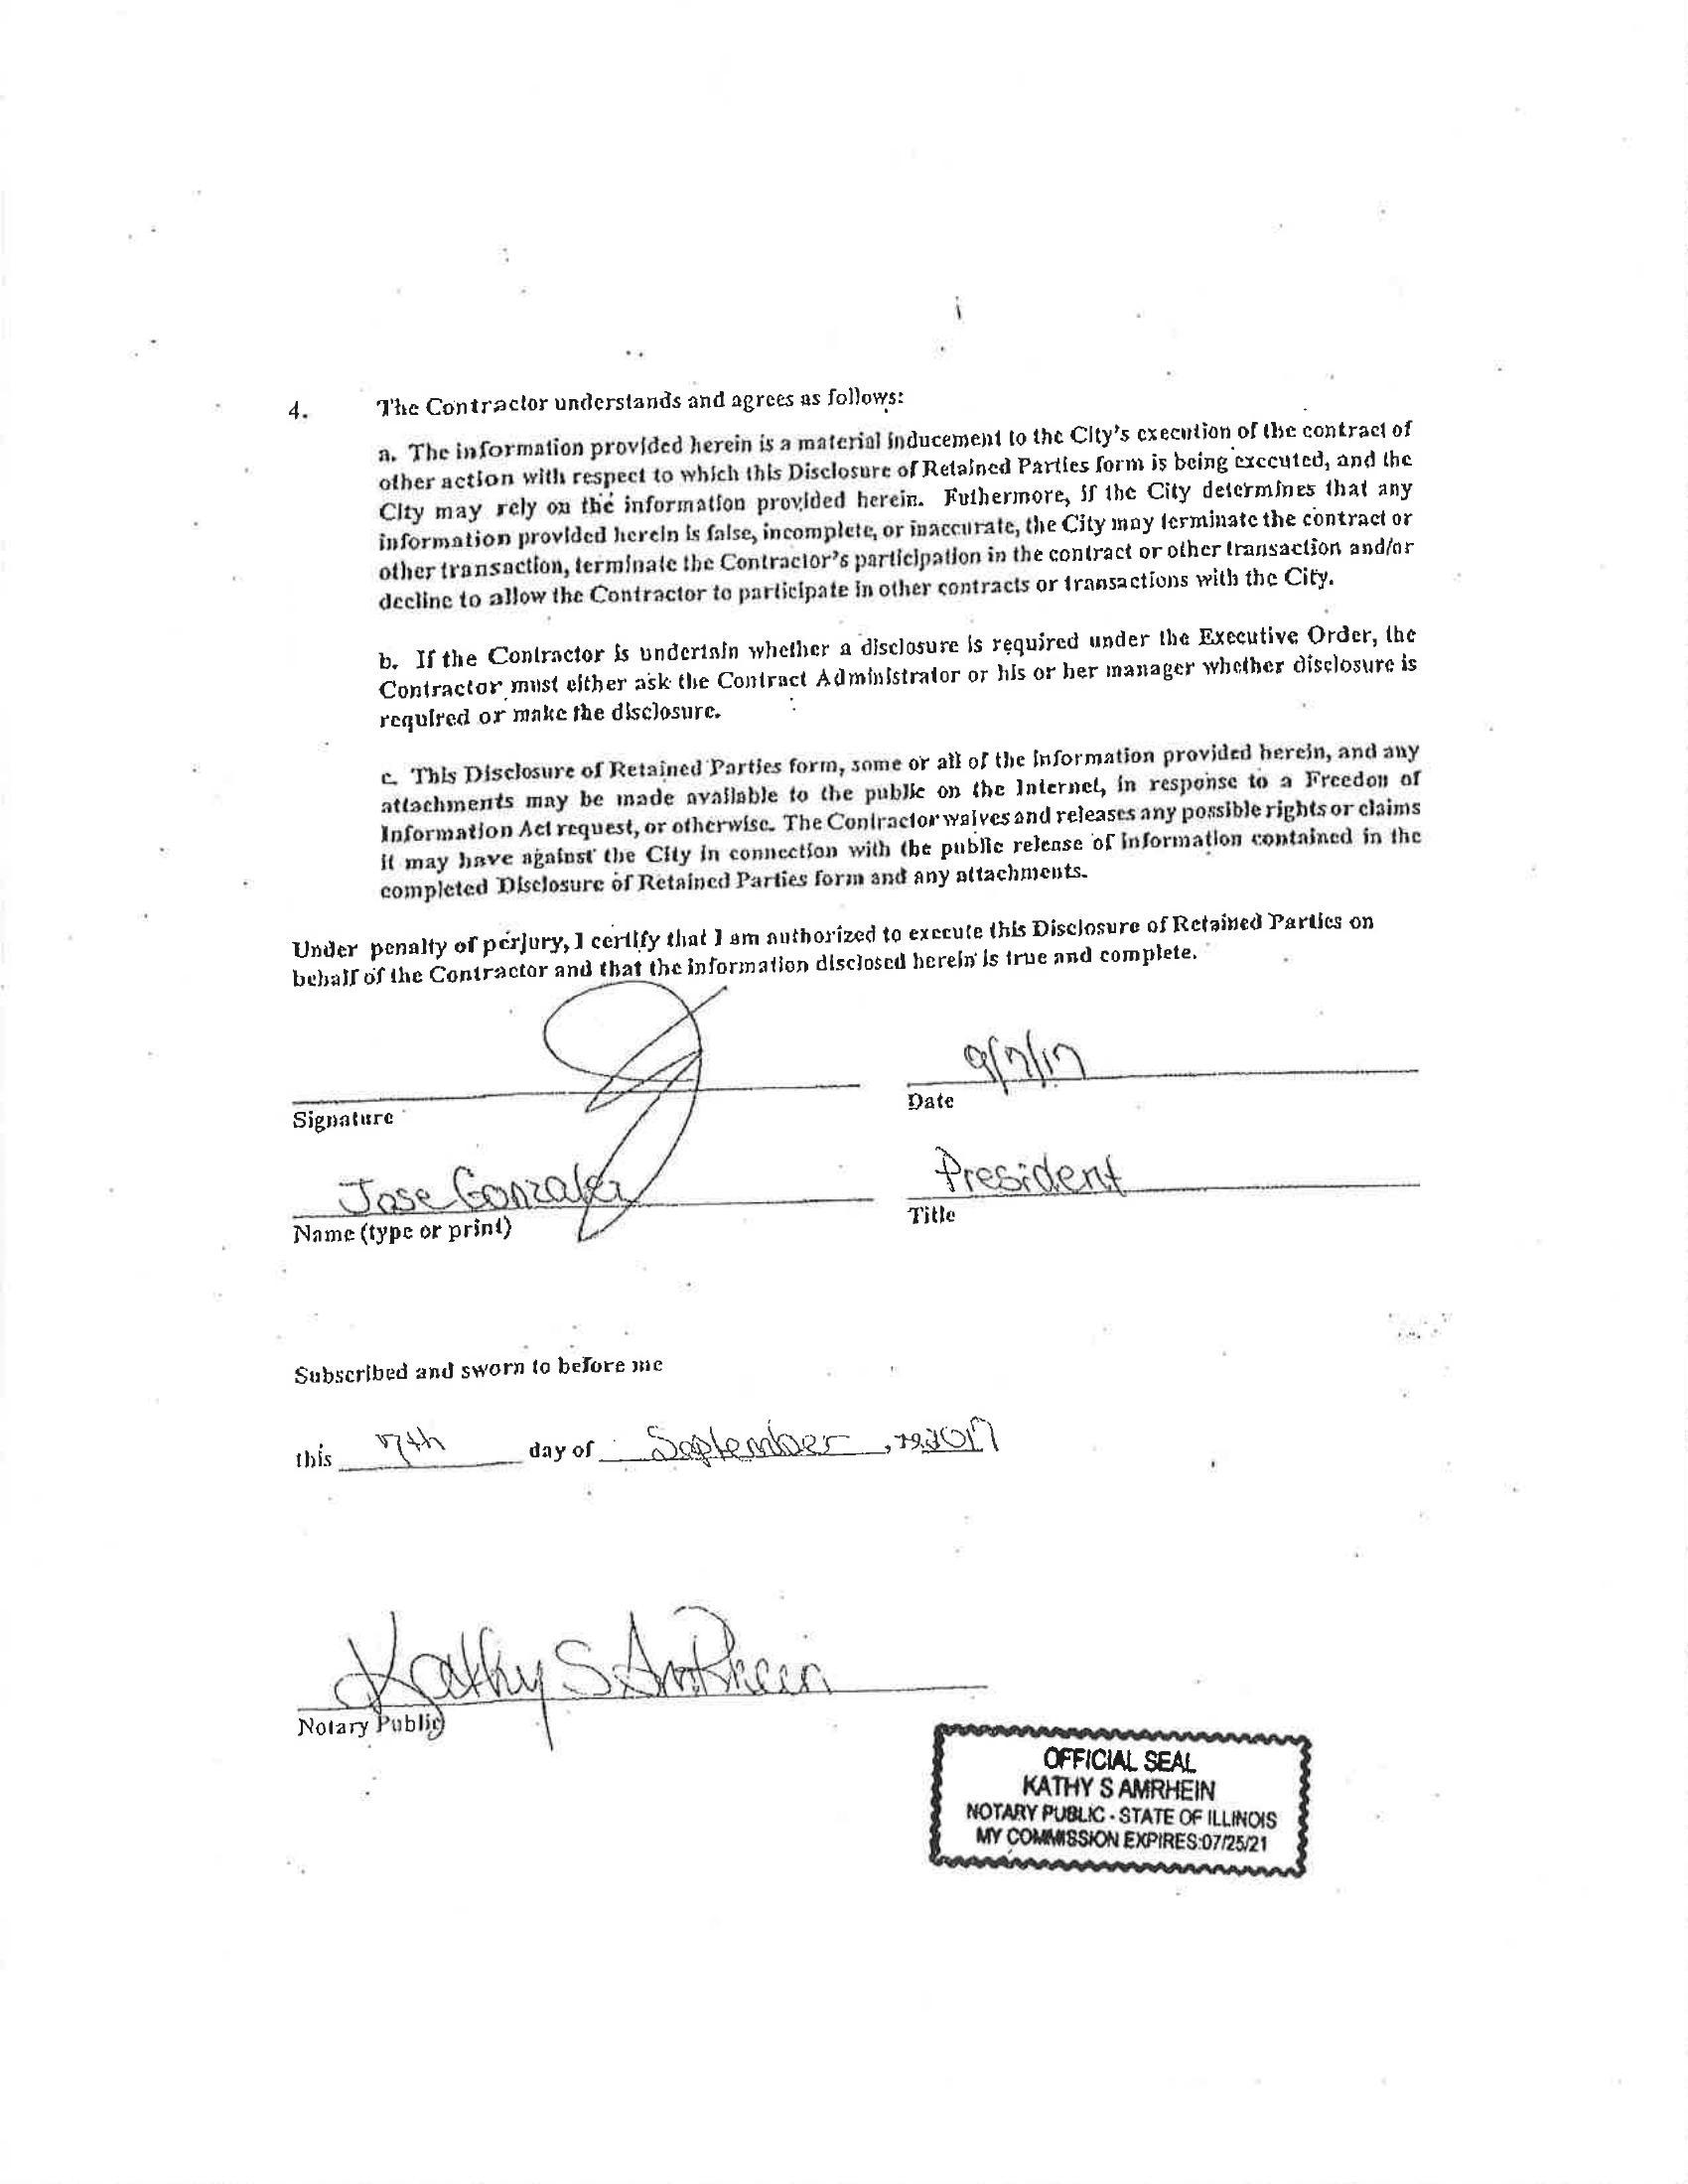 4. The Contractor understands and agrees as follows:
a. The information provided herein is a material inducement to the City's execution of the contract of
other action with respect to which this Disclosure of Retained Parties form is being executed, and the
City may rely on the information provided herein. Futhermore, if the City determines that any
information provided herein is false, incomplete, or inaccurate, the City may terminate the contract or
other transaction, terminate the Contractor's participation in the contract or other transaction and/or
decline to allow the Contractor to participate in other contracts or transactions with the City.
b. If the Contractor is undertain whether a disclosure is required under the Executive Order, the
Contractor must either ask the Contract Administrator or his or her manager whether disclosure is
required or make the disclosure.
c. This Disclosure of Retained Parties form, some or all of the information provided herein, and any
attachments may be made available to the public on the Internet, in response to a Freedon of
Information Act request, or otherwise. The Contractor waives and releases any possible rights or claims
it may have against the City in connection with the public release of information contained in the
completed Disclosure of Retained Parties form and any attachments.
Under penalty of perjury, I certify that I am authorized to execute this Disclosure of Retained Parties on
behalf of the Contractor and that the information disclosed herein is true and complete.
9/7/17
Signature Date
Jose Gonzalez President
Name (type or print) Title
Subscribed and sworn to before me
this 7th day of September, 2017
Kathy S Amrhein
Notary Public
OFFICIAL SEAL
KATHY S AMRHEIN
NOTARY PUBLIC - STATE OF ILLINOIS
MY COMMISSION EXPIRES:07/25/21